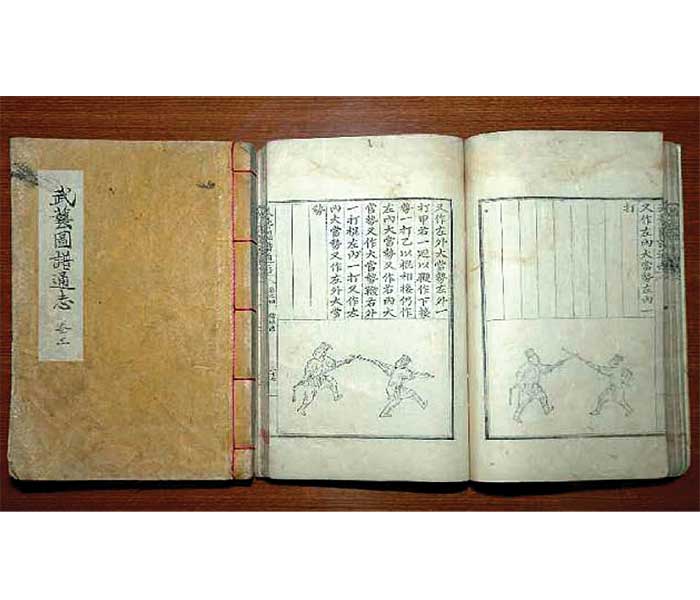 武藝圖譜通志 卷三
又作左內大當勢左內一
打
又作左外大當勢左外一
打甲右一廻以鞭作下接
勢一打乙以棍相接仍作
左內大當勢又作右內大
當勢又作大當勢鞭右外
一打棍左內一打又作左
內大當勢又作左外大當
勢